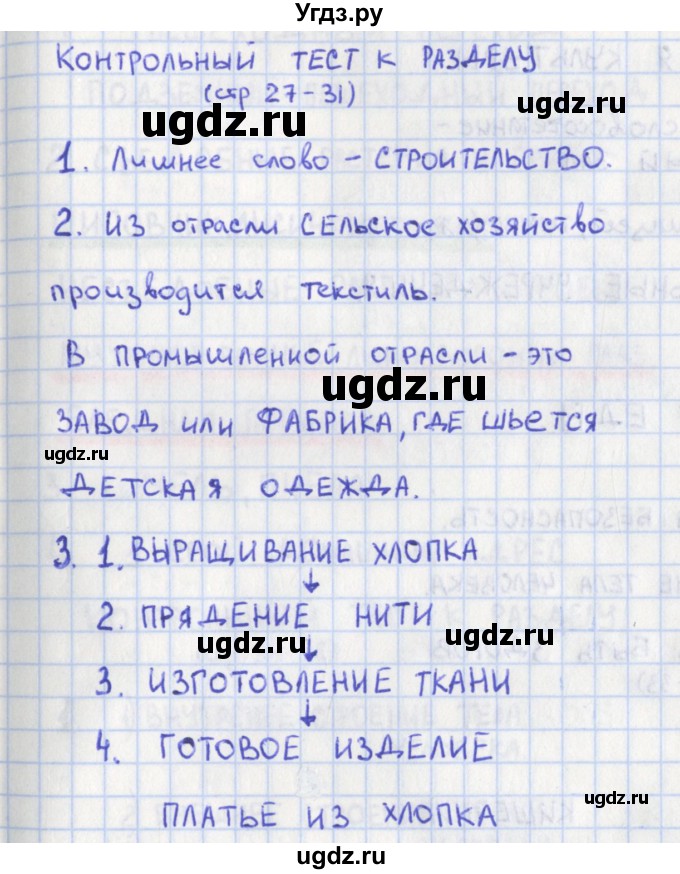 Угдз.ру
КОНТРОЛЬНЫЙ ТЕСТ К РАЗДЕЛУ
(стр 27-31)
ugdz.ru
1. Лишнее слово - СТРОИТЕЛЬСТВО.
ugdz.ru
2. ИЗ отрасли СЕЛЬСКОЕ хозяйство
производится текстиль.
В ПРОМЫШЛЕННОЙ ОТРАСЛИ - это
ugdz.ru
ЗАВОД или ФАБРИКА, ГДЕ шьется
ugdz.ru
ДЕТСКАЯ ОДЕЖДА.
3. 1. ВЫРАЩИВАНИЕ ХЛОПКА
↓
2. ПРЯДЕНИЕ НИТИ
ugdz.ru ugdz.ru
↓
3. ИЗГОТОВЛЕНИЕ ТКАНИ
↓
4. ГОТОВОЕ ИЗДЕЛИЕ
ugdz.ru
ПЛАТЬЕ ИЗ ХЛОПКА
ugdz.ru
ugdz.ru